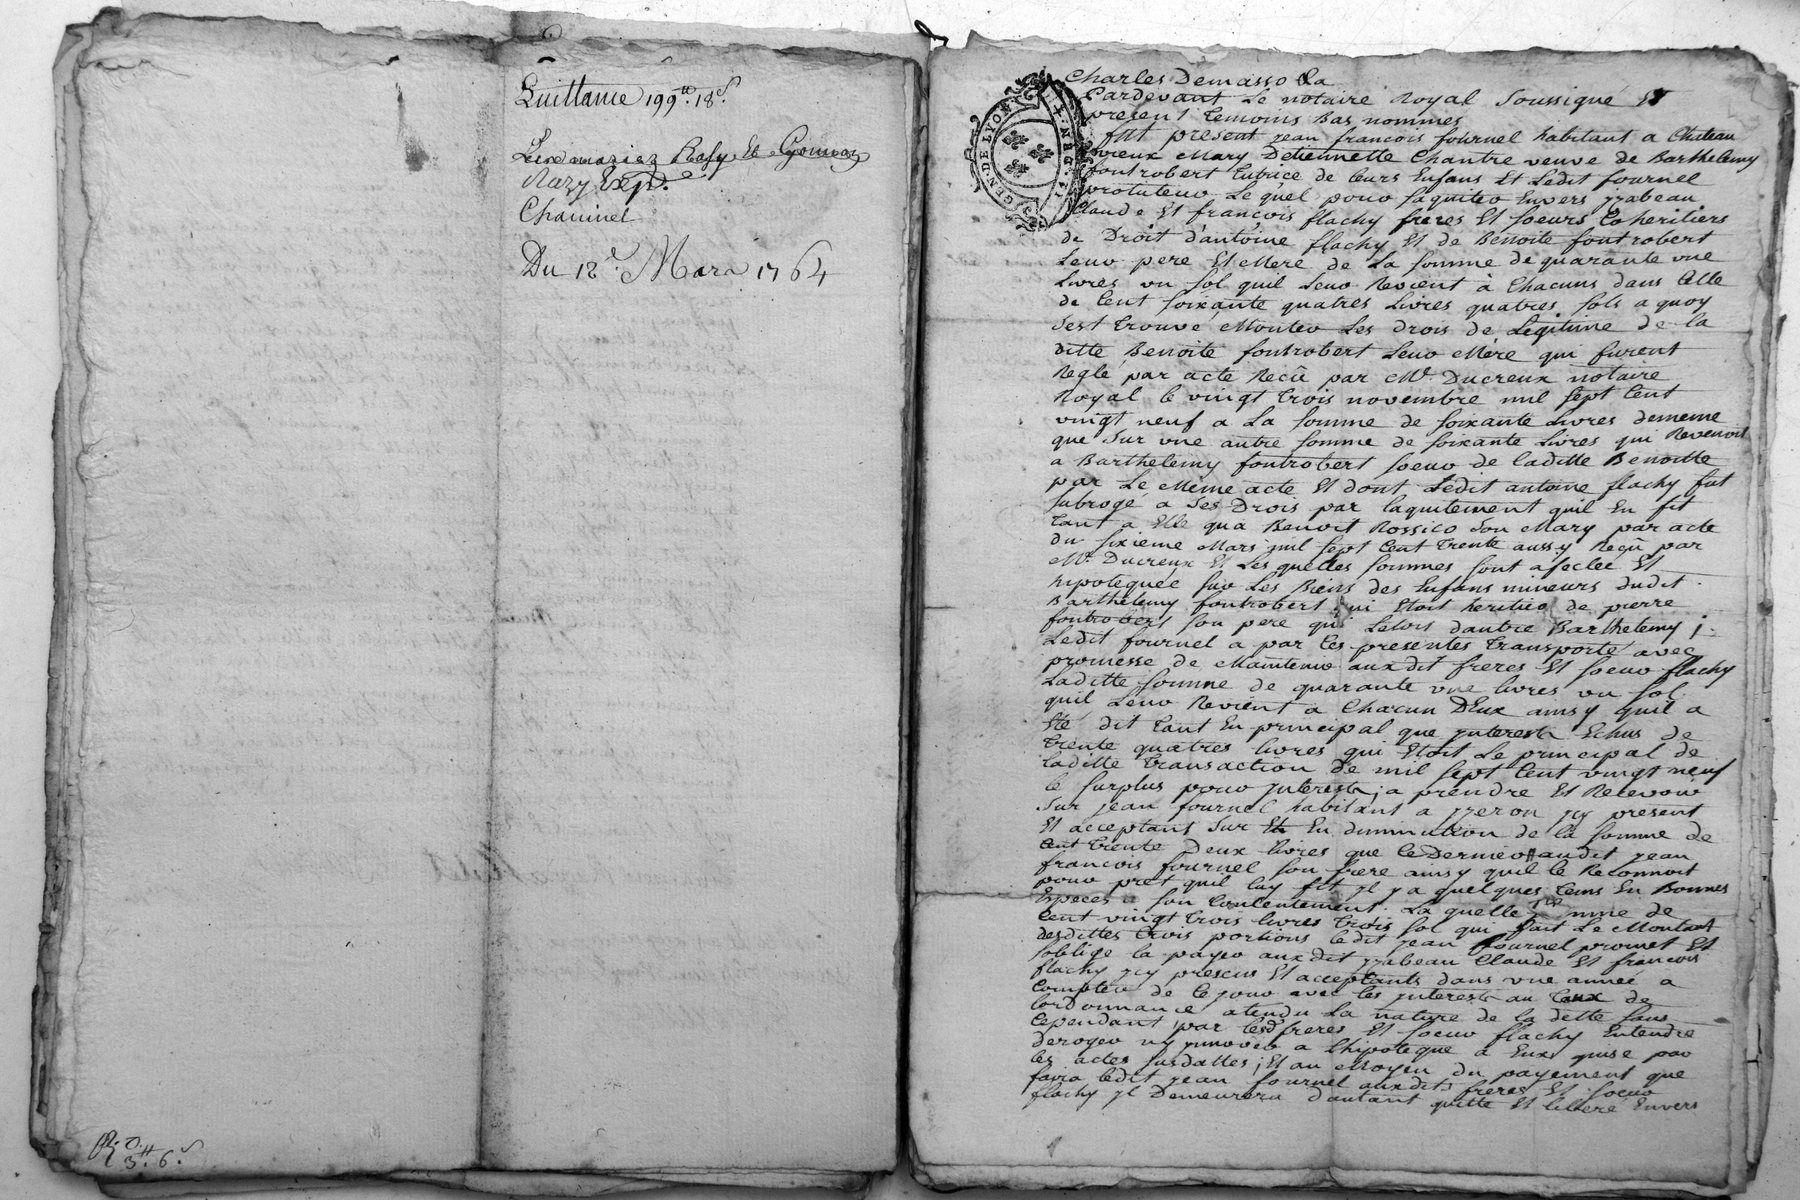 Quittance 199tt. 18s.
Razy Exp.
Chavinel
Du 18e. Mars 1764
3tt. 6s.
GEN. DE LYON
Charles Demasso La
Pardevant Le notaire Royal Soussigné Et
present temoins Bas nommes
fut present jean francois fournel habitant a Chateau
vieux Mary Detiennette Chantre veuve de Barthelemy
fontrobert tutrice de leurs Enfans Et Ledit fournel
protuteur Le quel pour saquiter Envers yzabeau
Claude Et francois flachy freres Et soeurs Coheritiers
de Droit d'antoine flachy Et de Benoite fontrobert
Leur pere Et Mere de La somme de quarante une
Livres un sol quil Leur Revient à Chacuns dans Celle
de Cent soixante quatres Livres quatres sols a quoy
sest trouvé Monter Les drois de Legitime de la
ditte Benoite fontrobert Leur Mère qui furent
Reglé par acte Reçû par Me. Ducreux notaire
Royal le vingt trois novembre mil sept Cent
vingt neuf a La somme de soixante Livres dememe
que sur une autre somme de soixante Livres qui Revenoit
a Barthelemy fontrobert soeur de laditte Benoitte
par Le Même acte Et dont Ledit antoine flachy fut
subrogé a ses Drois par laquitement quil En fit
tant a Elle qua Benoit Rossico son Mary par acte
du sixieme Mars mil sept Cent trente aussy Reçû par
Me. Ducreux Et Les quelles sommes sont afectée Et
hipotequée sur Les Biens des Enfans mineurs dudit
Barthelemy fontrobert qui Etoit heritier de pierre
fontrobert son pere qui Letois dautre Barthelemy ;
Ledit fournel a par Ces presentes transporté avec
promesse de Maintenir auxdit freres Et soeur flachy
Laditte somme de quarante une livres un sol
quil Leur Revient a Chacun DEux ainsy quil a
Eté dit tant En principal que jnterests Echus de
trente quatres livres qui Etoit Le principal de
laditte transaction de mil sept Cent vingt neuf
le surplus pour jnterests ; a prendre Et Recevoir
sur jean fournel habitant a yzeron jcy present
Et acceptant sur Et En diminution de la somme de
Cent trente Deux livres que le Dernier audit jean
francois fournel son frere ainsy quil le Reconnoit
pour pret quil luy fit jl y a quelques tems En Bonnes
Especes a son Contentement. La quelle somme de
Cent vingt trois livres trois sol qui fait Le Montant
desdittes trois portions ledit jean fournel promet Et
soblige la payer auxdit yzabeau Claude Et francois
flachy jcy presens Et acceptants dans une année a
Compter de Ce jour avec les jnterests au taux de
lordonnance atendu La nature de la dette sans
Cependant par lesd. freres Et soeur flachy Entendre
deroger ny jnnover a l'hipoteque a Eux quise par
les actes susdattes ; Et au Moyen du payement que
faira ledit jean fournel auxdits freres Et soeur
flachy jl Demeurera d'autant quitte Et libere Envers